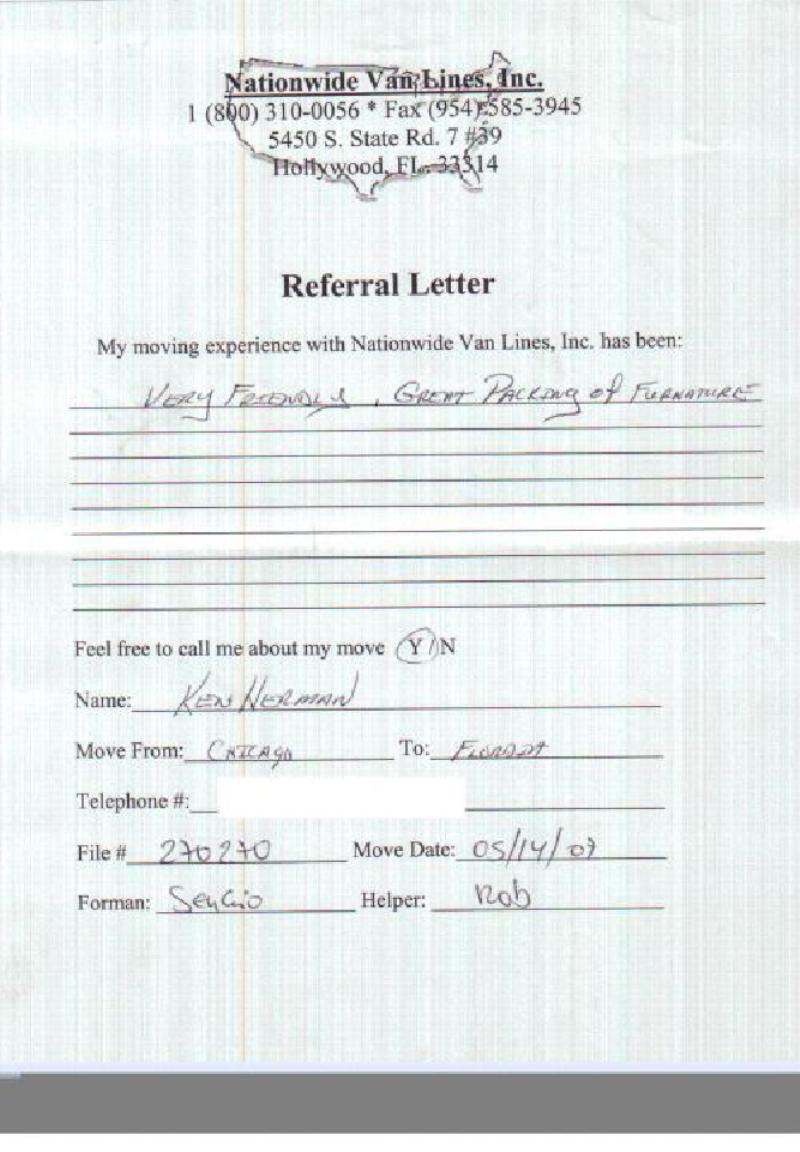 Nationwide Van Lines, Inc.
1 (800) 310-0056 * Fax (954) 585-3945
5450 S. State Rd. 7 #39
Hollywood, FL. 33314
Referral Letter
My moving experience with Nationwide Van Lines, Inc. has been:
VERY FRIENDLY, GREAT PACKING of FURNATURE
Feel free to call me about my move Y/N
Name: KEN HERMAN
Move From: CHICAGO To: FLORIDA
Telephone #:
File # 270270 Move Date: 05/14/07
Forman: Sergio Helper: Rob